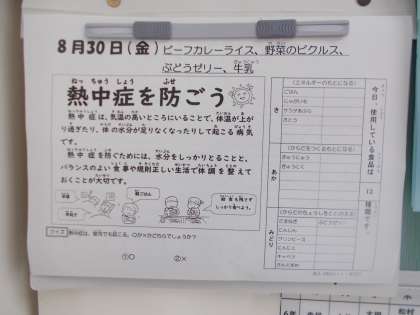 8月30日(金)
ビーフカレーライス、野菜のピクルス、
ぶどうゼリー、牛乳
ねっ ちゅう しょう ふせ
熱中症を防ごう
熱中症は、気温の高いところにいることで、体温が上が
り過ぎたり、体の水分が足りなくなったりして起こる病気
です。
熱中症を防ぐためには、水分をしっかりとることと、
バランスのよい食事や規則正しい生活で体調を整えて
おくことが大切です。
クイズ 熱中症は、室内でも起こる。○か×かどちらでしょうか?
①○ ②×
今日、使用している食品は
12
種類です。
き
(エネルギーのもとになる)
ごはん
じゃがいも
サラダあぶら
さとう
あか
(からだをつくるもとになる)
ぎゅうにく
ぎゅうにゅう
みどり
(からだのちょうしをととのえる)
たまねぎ ぶどうゼリー
にんじん
グリンピース
にんにく
キャベツ
6年